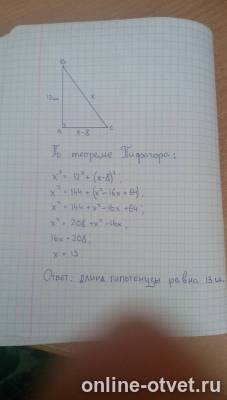 B
12см
x
A
x-8
C
По теореме Пифагора:
x² = 12² + (x-8)²;
x² = 144 + (x² - 16x + 64);
x² = 144 + x² - 16x + 64;
x² = 208 + x² - 16x;
16x = 208;
x = 13.
Ответ: длина гипотенузы равна 13 см.
online-otvet.ru